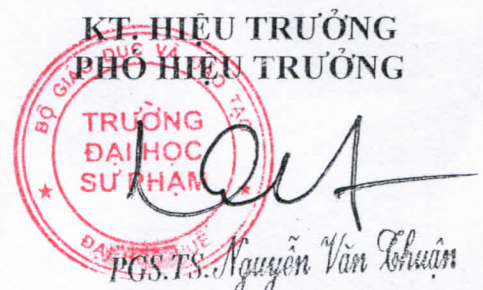 KT. HIỆU TRƯỞNG
PHÓ HIỆU TRƯỞNG
BỘ GIÁO DỤC VÀ ĐÀO TẠO
TRƯỜNG
ĐẠI HỌC
SƯ PHẠM
PGS.TS. Nguyễn Văn Thuận